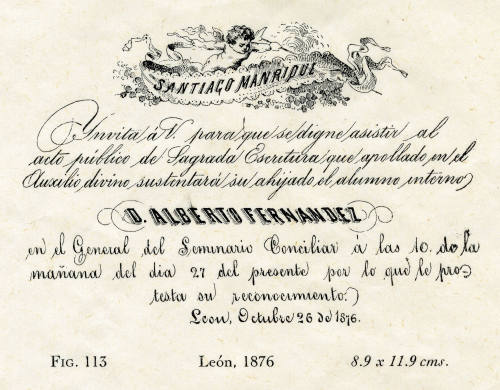 SANTIAGO MANRIQUE
Ynvita á V. para que se digne asistir al
acto público de Sagrada Escritura que apollado en el
Auxilio divino sustentará su ahijado el alumno interno
D. ALBERTO FERNANDEZ
en el General del Seminario Conciliar á las 10. de la
mañana del dia 27 del presente por lo que le pro-
testa su reconocimiento.
Leon, Octubre 26 de 1876.
FIG. 113 León, 1876 8.9 x 11.9 cms.